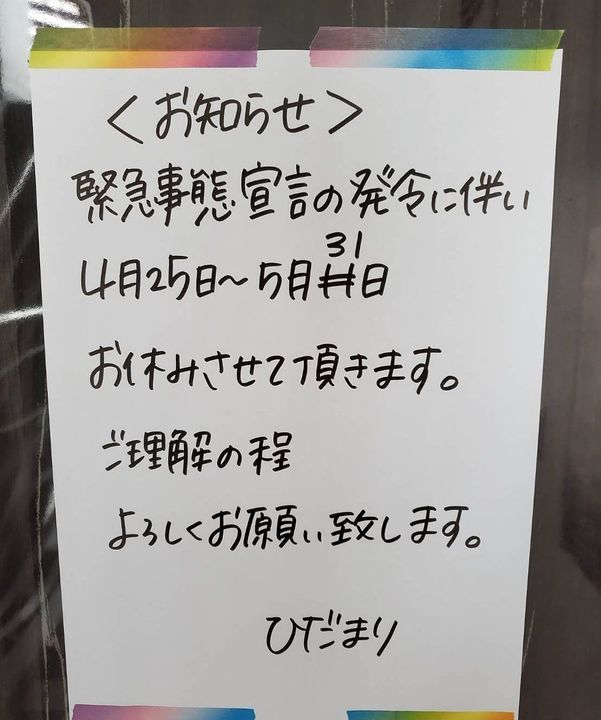 <お知らせ>
緊急事態宣言の発令に伴い
4月25日~5月31日
お休みさせて頂きます。
ご理解の程
よろしくお願い致します。
ひだまり